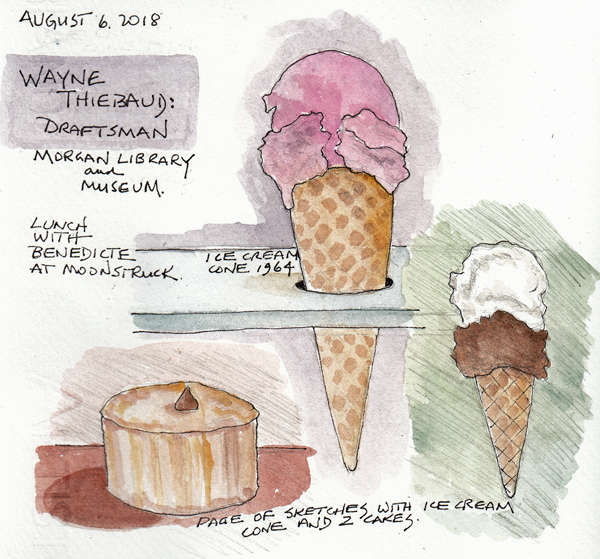 AUGUST 6. 2018
WAYNE
THIEBAUD:
DRAFTSMAN
MORGAN LIBRARY
and
MUSEUM.
LUNCH
WITH
BENEDICTE
AT MOONSTRUCK.
ICE CREAM
CONE 1964
PAGE OF SKETCHES WITH ICE CREAM
CONE AND 2 CAKES.